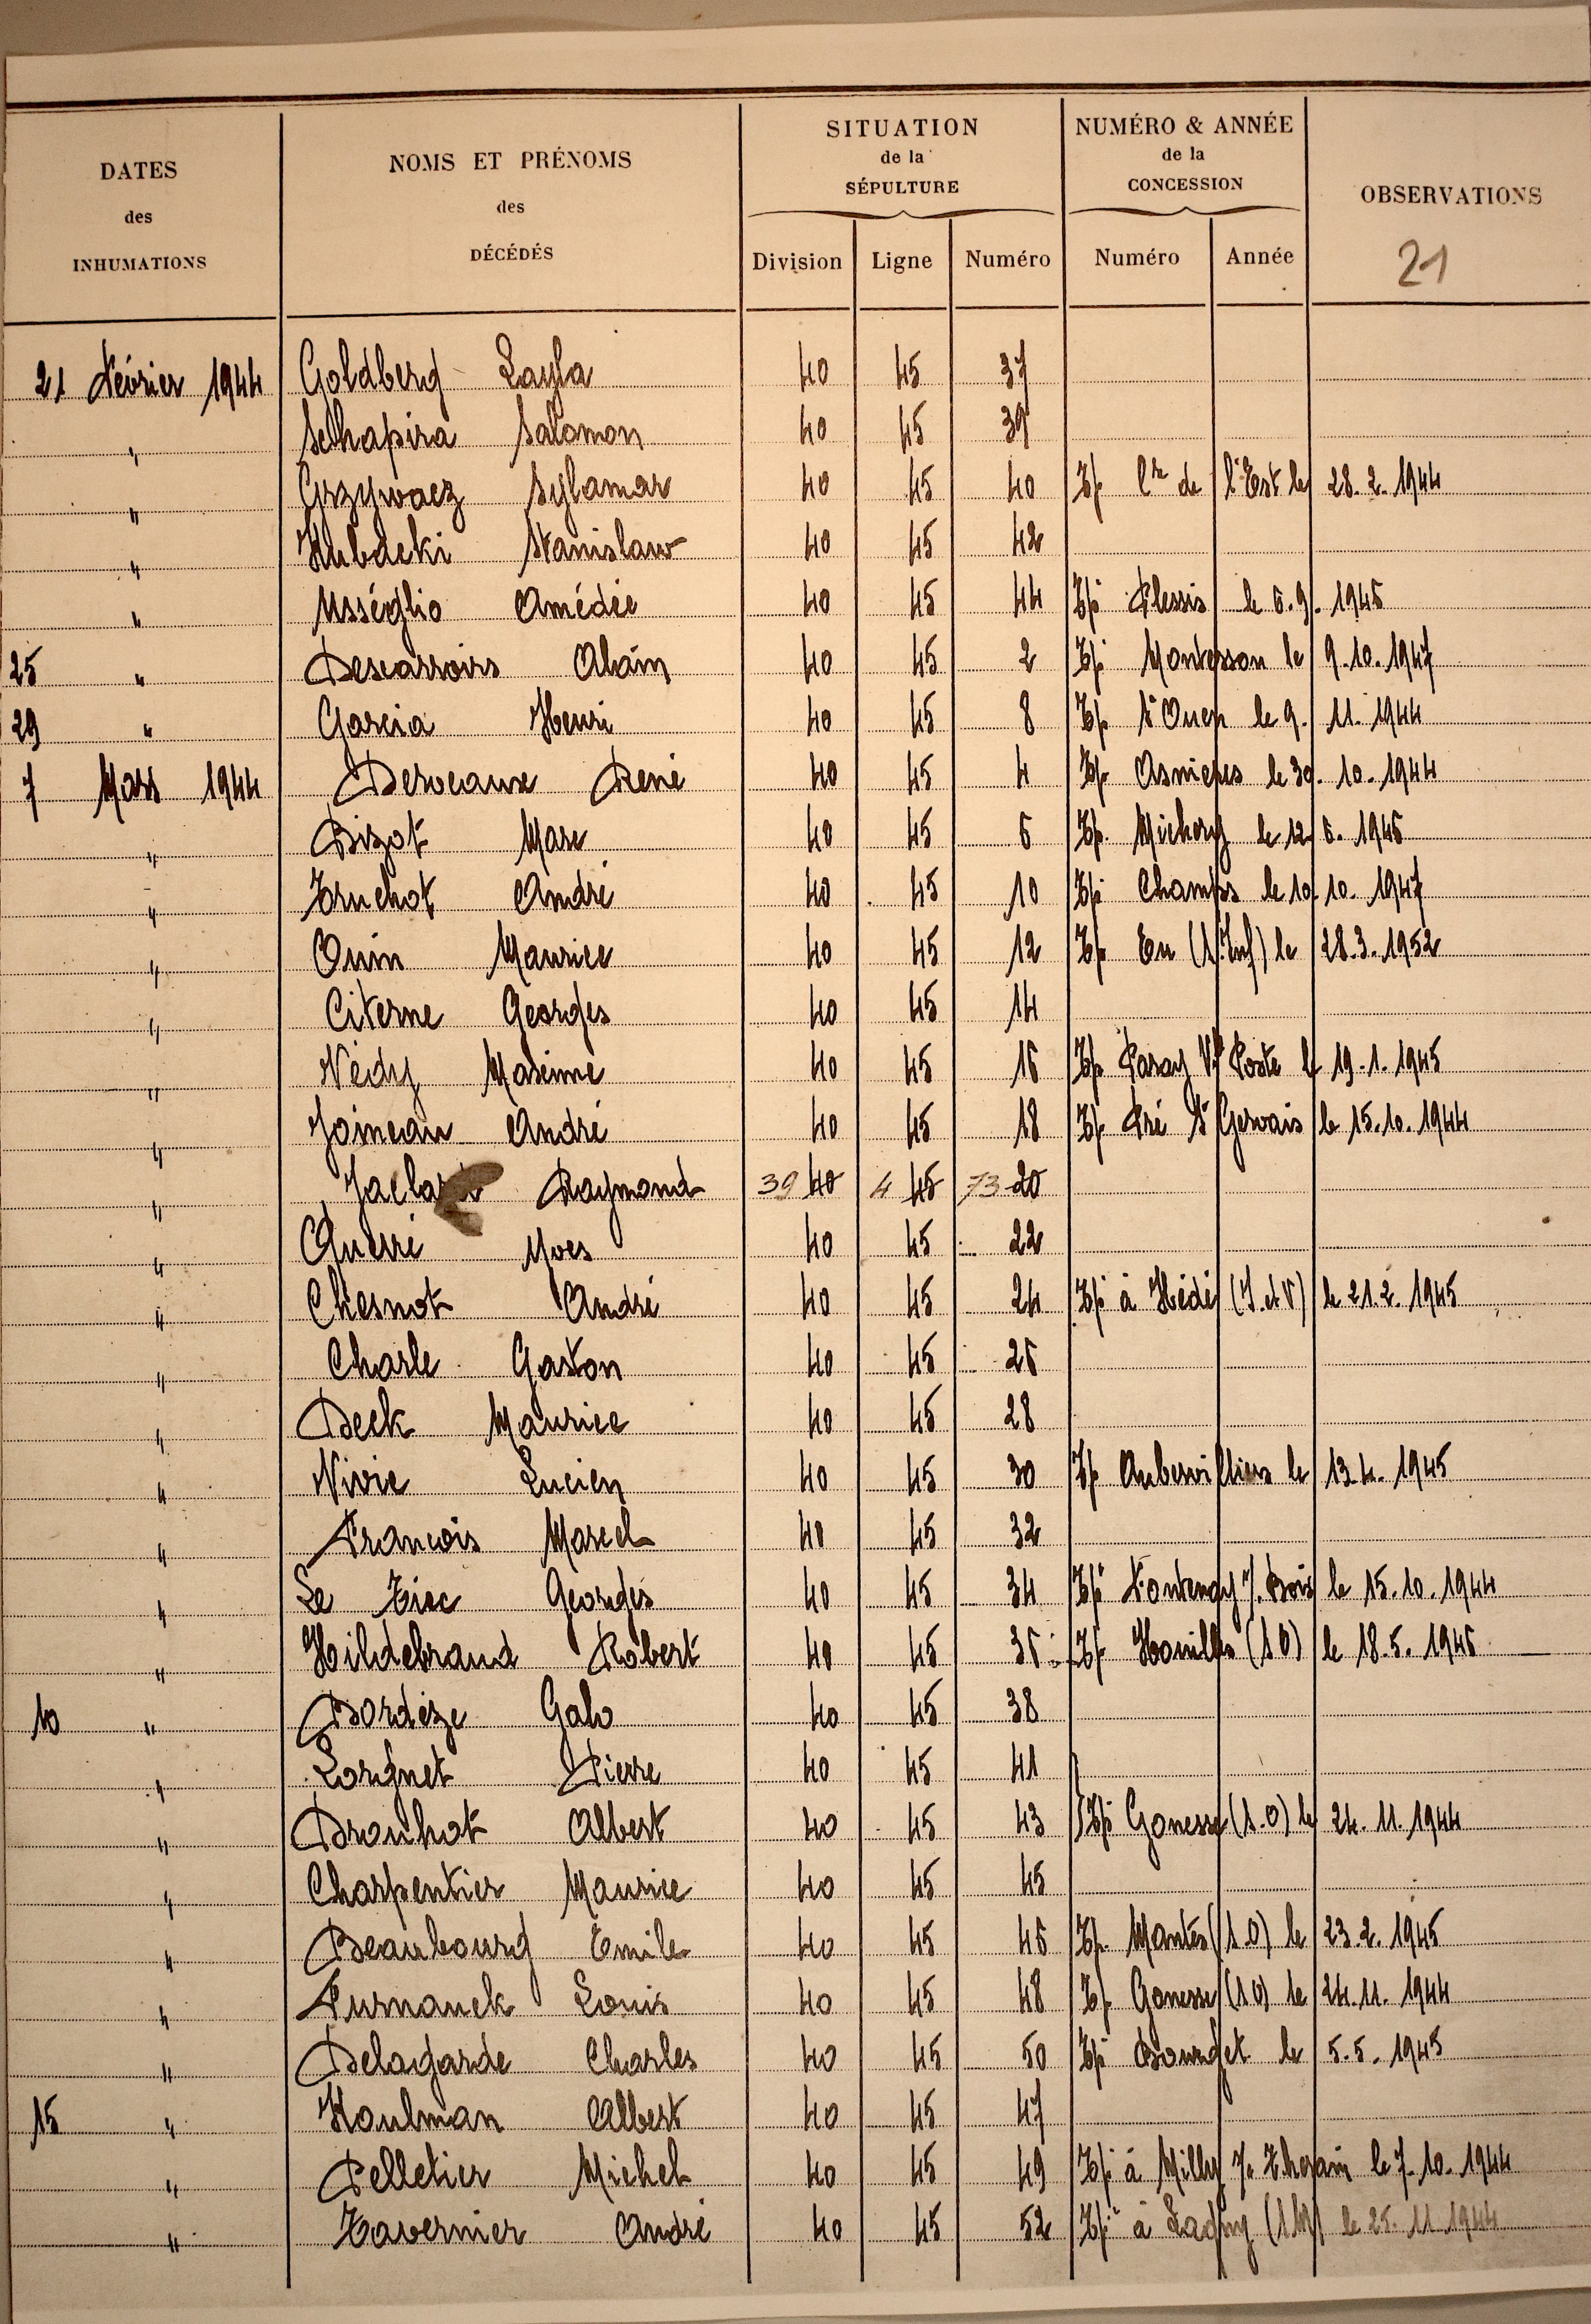 DATES
des
INHUMATIONS
NOMS ET PRÉNOMS
des
DÉCÉDÉS
SITUATION
de la
SÉPULTURE
NUMÉRO & ANNÉE
de la
CONCESSION
OBSERVATIONS
Division Ligne Numéro Numéro Année
21
21 Février 1944 Goldberg Layla 40 45 37
" Schapira Salomon 40 45 39
" Grzywacz Sylamar 40 45 40 Tp Cre de l'Est le 28.2.1944
" Kubacki Stanislaw 40 45 42
" Usséglio Amédée 40 45 44 Tp Plessis le 6.9.1945
25 " Descarroirs Alain 40 45 2 Tp Montesson le 9.10.1947
29 " Garcia Henri 40 45 8 Tp St Ouen le 9.11.1944
7 Mars 1944 Derveaux René 40 45 4 Tp Asnieres le 30.10.1944
" Bizot Marc 40 45 6 Tp. Michery le 12.6.1945
" Truchot André 40 45 10 Tp Champs le 10.10.1947
" Ouin Maurice 40 45 12 Tp Eu (S.Inf) le 28.3.1952
" Citerne Georges 40 45 14
" Védy Maxime 40 45 16 Tp Paray Vlle Poste le 19.1.1945
" Joineau André 40 45 18 Tp Pré St Gervais le 15.10.1944
" Raymond 39 40 4 45 73 20
" Querré Yves 40 45 22
" Chesnot André 40 45 24 Tp à Hédé (I.et V) le 21.2.1945
" Charle Gaston 40 45 26
" Deck Maurice 40 45 28
" Nivie Lucien 40 45 30 Tp Aubervilliers le 13.4.1945
" Francois Marcel 40 45 32
" Le Tiec Georges 40 45 34 Tp Fontenay s/. Bois le 15.10.1944
" Hildebrand Robert 40 45 36 Tp Houilles (S O) le 18.5.1945
10 " Bordéze Galo 40 45 38
" Lorgnet Pierre 40 45 41
" Drouhot Albert 40 45 43 Tp Gonesse (S.O) le 24.11.1944
" Charpentier Maurice 40 45 45
" Beaubourg Emile 40 45 46 Tp. Mantes (S.O) le 23.2.1945
" Furnanek Louis 40 45 48 Tp Gonesse (S O) le 24.11.1944
" Delagarde Charles 40 45 50 Tp Bourget le 5.5.1945
15 " Koulman Albert 40 45 47
" Pelletier Michel 40 45 49 Tp à Milly le 7.10.1944
" Tavernier André 40 45 52 Tp à Lagny (S M) le 25.11.1944